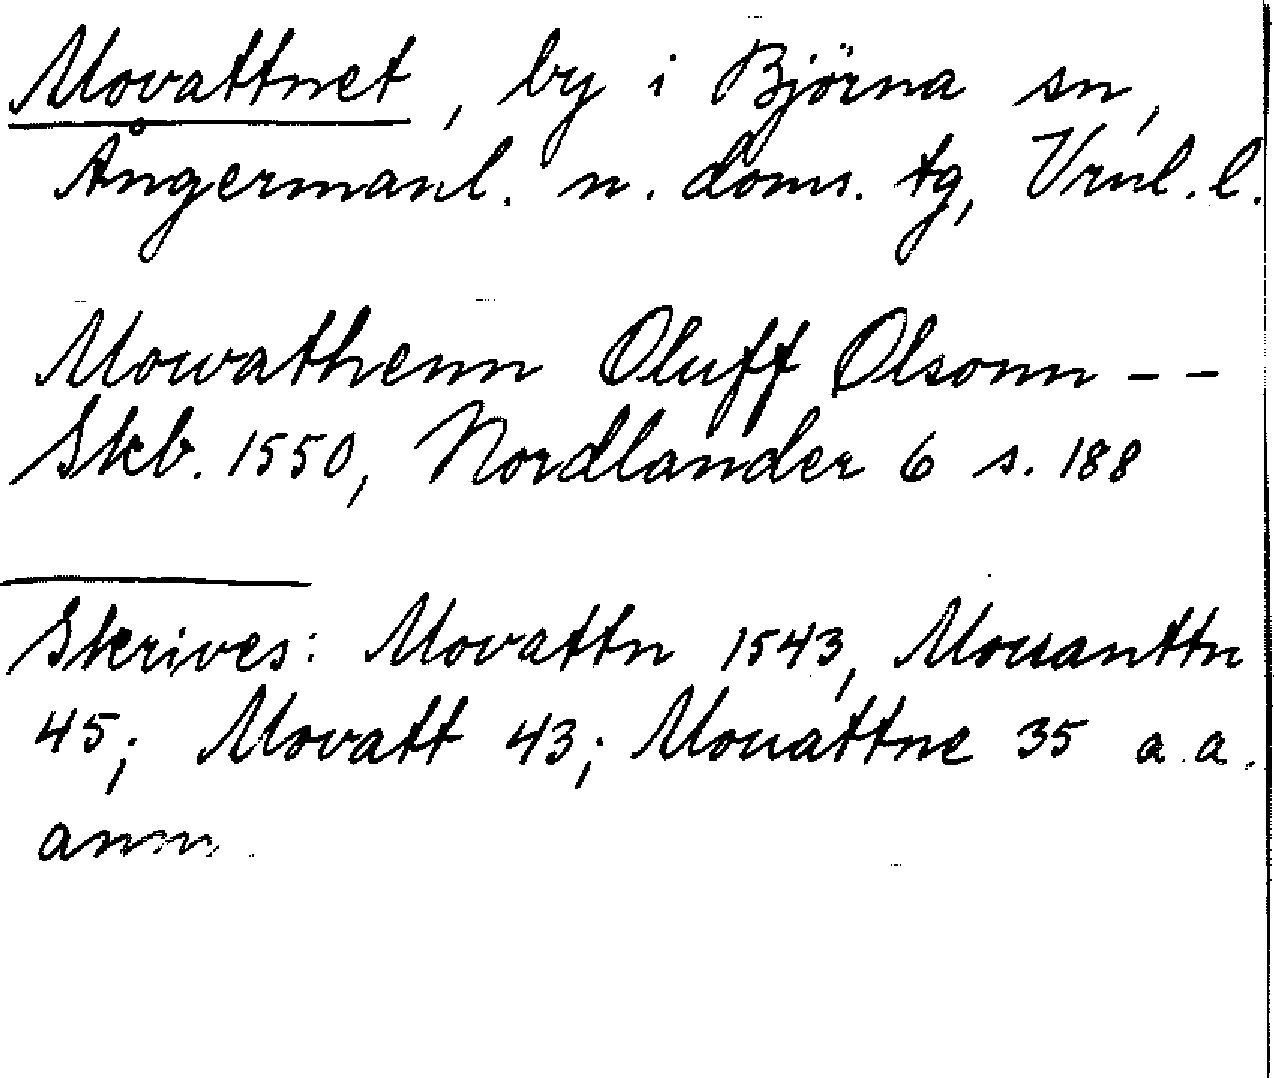 Movattnet, by i Björna sn,
Ångermanl. n. doms. tg, Vrnl. l.
Mowathenn Oluff Olsonn - -
Skb. 1550, Nordlander 6 s. 188
Skrives: Movattn 1543, Mouanttn
45; Movatt 43; Mouattne 35 a. a.
anm.